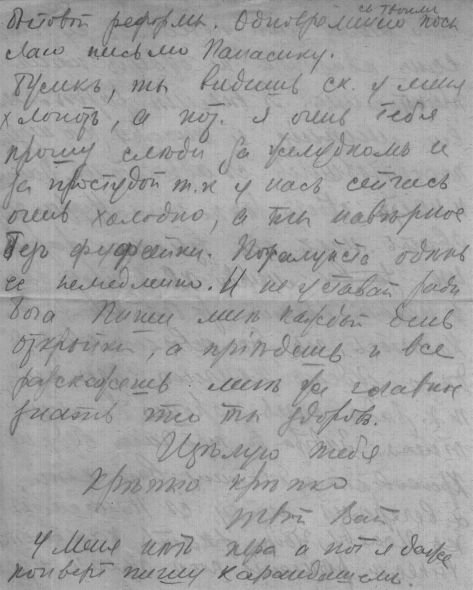 бытовой реформы. Одновременно съ твоими посы
лаю письмо Панасику.
Пусикъ, ты видишь ск. у меня
хлопотъ, а пот. я очень тебя
прошу слѣди за желудкомъ и
за простудой т.к у насъ сейчасъ
очень холодно, а ты навѣрное
безъ фуфайки. Пожалуйста одѣнь
ее немедленно. И не уставай ради
Бога Пиши мнѣ каждый день
открытки, а пріѣдешь и все
разскажешь мнѣ главное
знать что ты здоровъ.
Цѣлую тебя
крѣпко крѣпко
твой
У меня нѣтъ пера а пот я даже
конвертъ пишу карандашемъ.